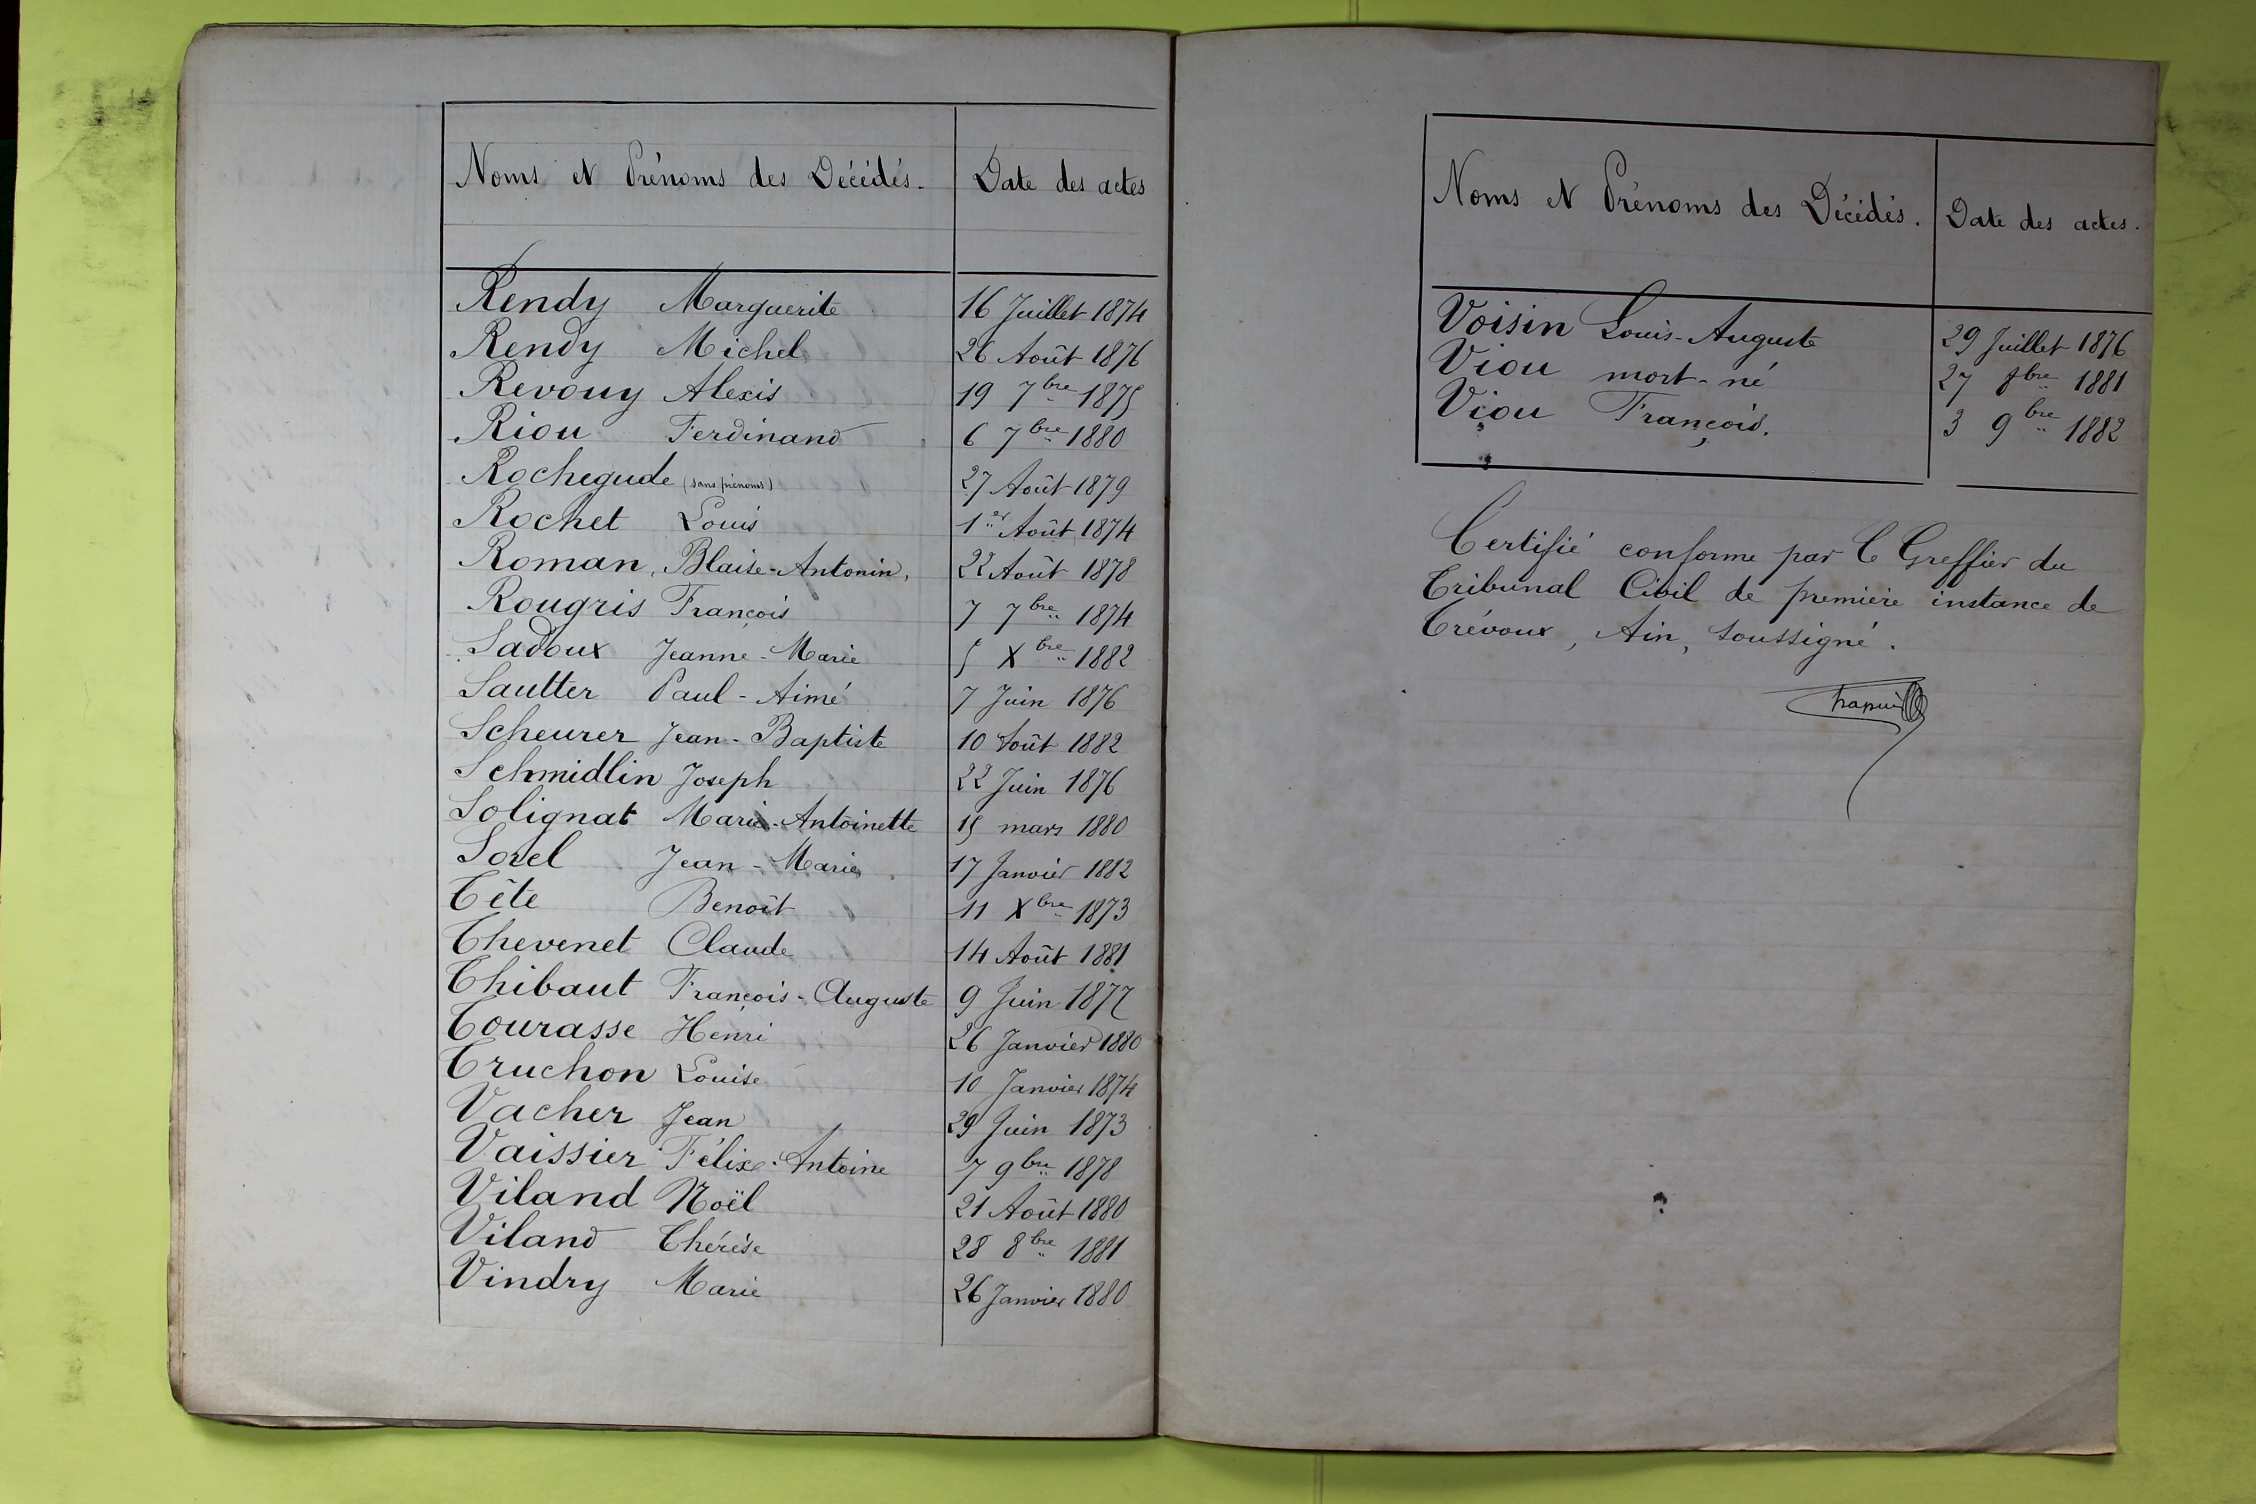 Noms et Prénoms des Décédés. Date des actes
Rendy Marguerite 16 Juillet 1874
Rendy Michel 26 Août 1876
Revouy Alexis 19 7bre 1875
Riou Ferdinand 6 7bre 1880
Rochegude (sans prénoms) 27 Août 1879
Rochet Louis 1er Août 1874
Roman, Blaise-Antonin, 22 Août 1878
Rougris François 7 7bre 1874
Sadoux Jeanne-Marie 5 Xbre 1882
Sautter Paul-Aimé 7 Juin 1876
Scheurer Jean-Baptiste 10 Août 1882
Schmidlin Joseph 22 Juin 1876
Solignat Marie-Antoinette 15 mars 1880
Sorel Jean-Marie 17 Janvier 1882
Tête Benoît 11 Xbre 1873
Thevenet Claude 14 Août 1881
Thibaut François-Auguste 9 Juin 1877
Tourasse Henri 26 Janvier 1880
Truchon Louise 10 Janvier 1874
Vacher Jean 29 Juin 1873
Vaissier Félix-Antoine 7 9bre 1878
Viland Noël 21 Août 1880
Viland Thérèse 28 8bre 1881
Vindry Marie 26 Janvier 1880
Noms et Prénoms des Décédés. Date des actes.
Voisin Louis-Auguste 29 Juillet 1876
Viou mort-né 27 8bre 1881
Viou François. 3 9bre 1882
Certifié conforme par le Greffier du
Tribunal Civil de première instance de
Trévoux, Ain, soussigné.